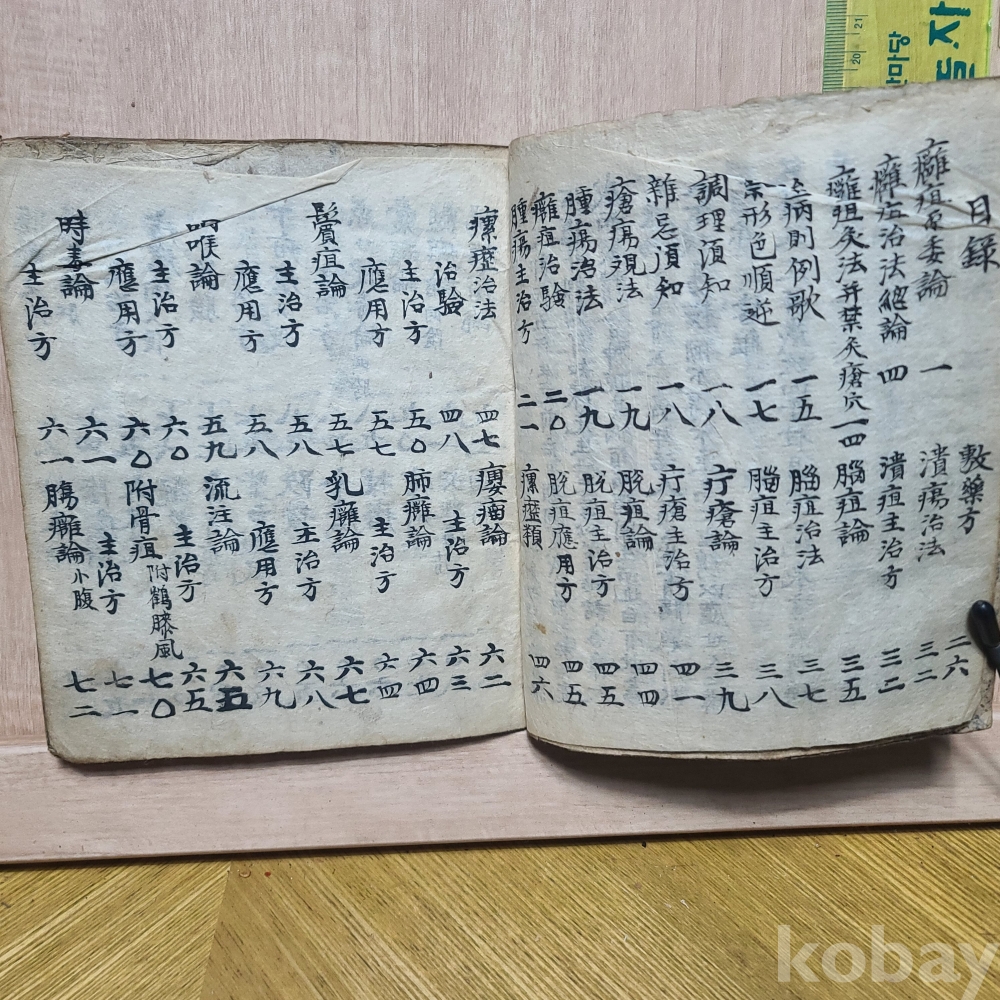 目録
癰疽原委論 一
癰疽治法總論 四
癰疽灸法并禁灸瘡穴 一四
病則例歌 一五
形色順逆 一七
調理須知 一八
雜忌須知 一八
瘡瘍現法 一九
腫瘍治法 一九
癰疽治驗 二〇
腫瘍主治方 二一
敷藥方 二六
潰瘍治法 三二
潰疽主治方 三二
腦疽論 三五
腦疽治法 三七
腦疽主治方 三八
疔瘡論 三九
疔瘡主治方 四一
脫疽論 四四
脫疽主治方 四五
脫疽應用方 四五
瘰癧類 四六
瘰癧治法 四七
治驗 四八
主治方 五〇
應用方 五七
鬢疽論 五七
主治方 五八
應用方 五八
咽喉論 五九
主治方 六〇
應用方 六〇
時毒論 六一
主治方 六一
癭瘤論 六二
主治方 六三
肺癰論 六四
主治方 六四
乳癰論 六七
主治方 六八
應用方 六九
流注論 六五
主治方 六五
附骨疽 附鶴膝風 七〇
主治方 七一
腸癰論 小腹 七二
20 21
한마당
kobay